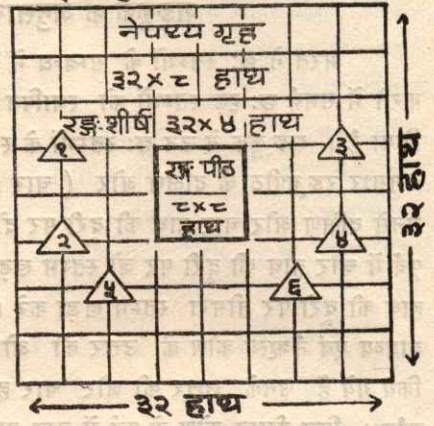 नेपथ्य गृह
३२ × ८ हाथ
रङ्ग-शीर्ष ३२ × ४ हाथ
१
३
रङ्ग पीठ
८ × ८
हाथ
२
४
५
६
३२ हाथ
३२ हाथ